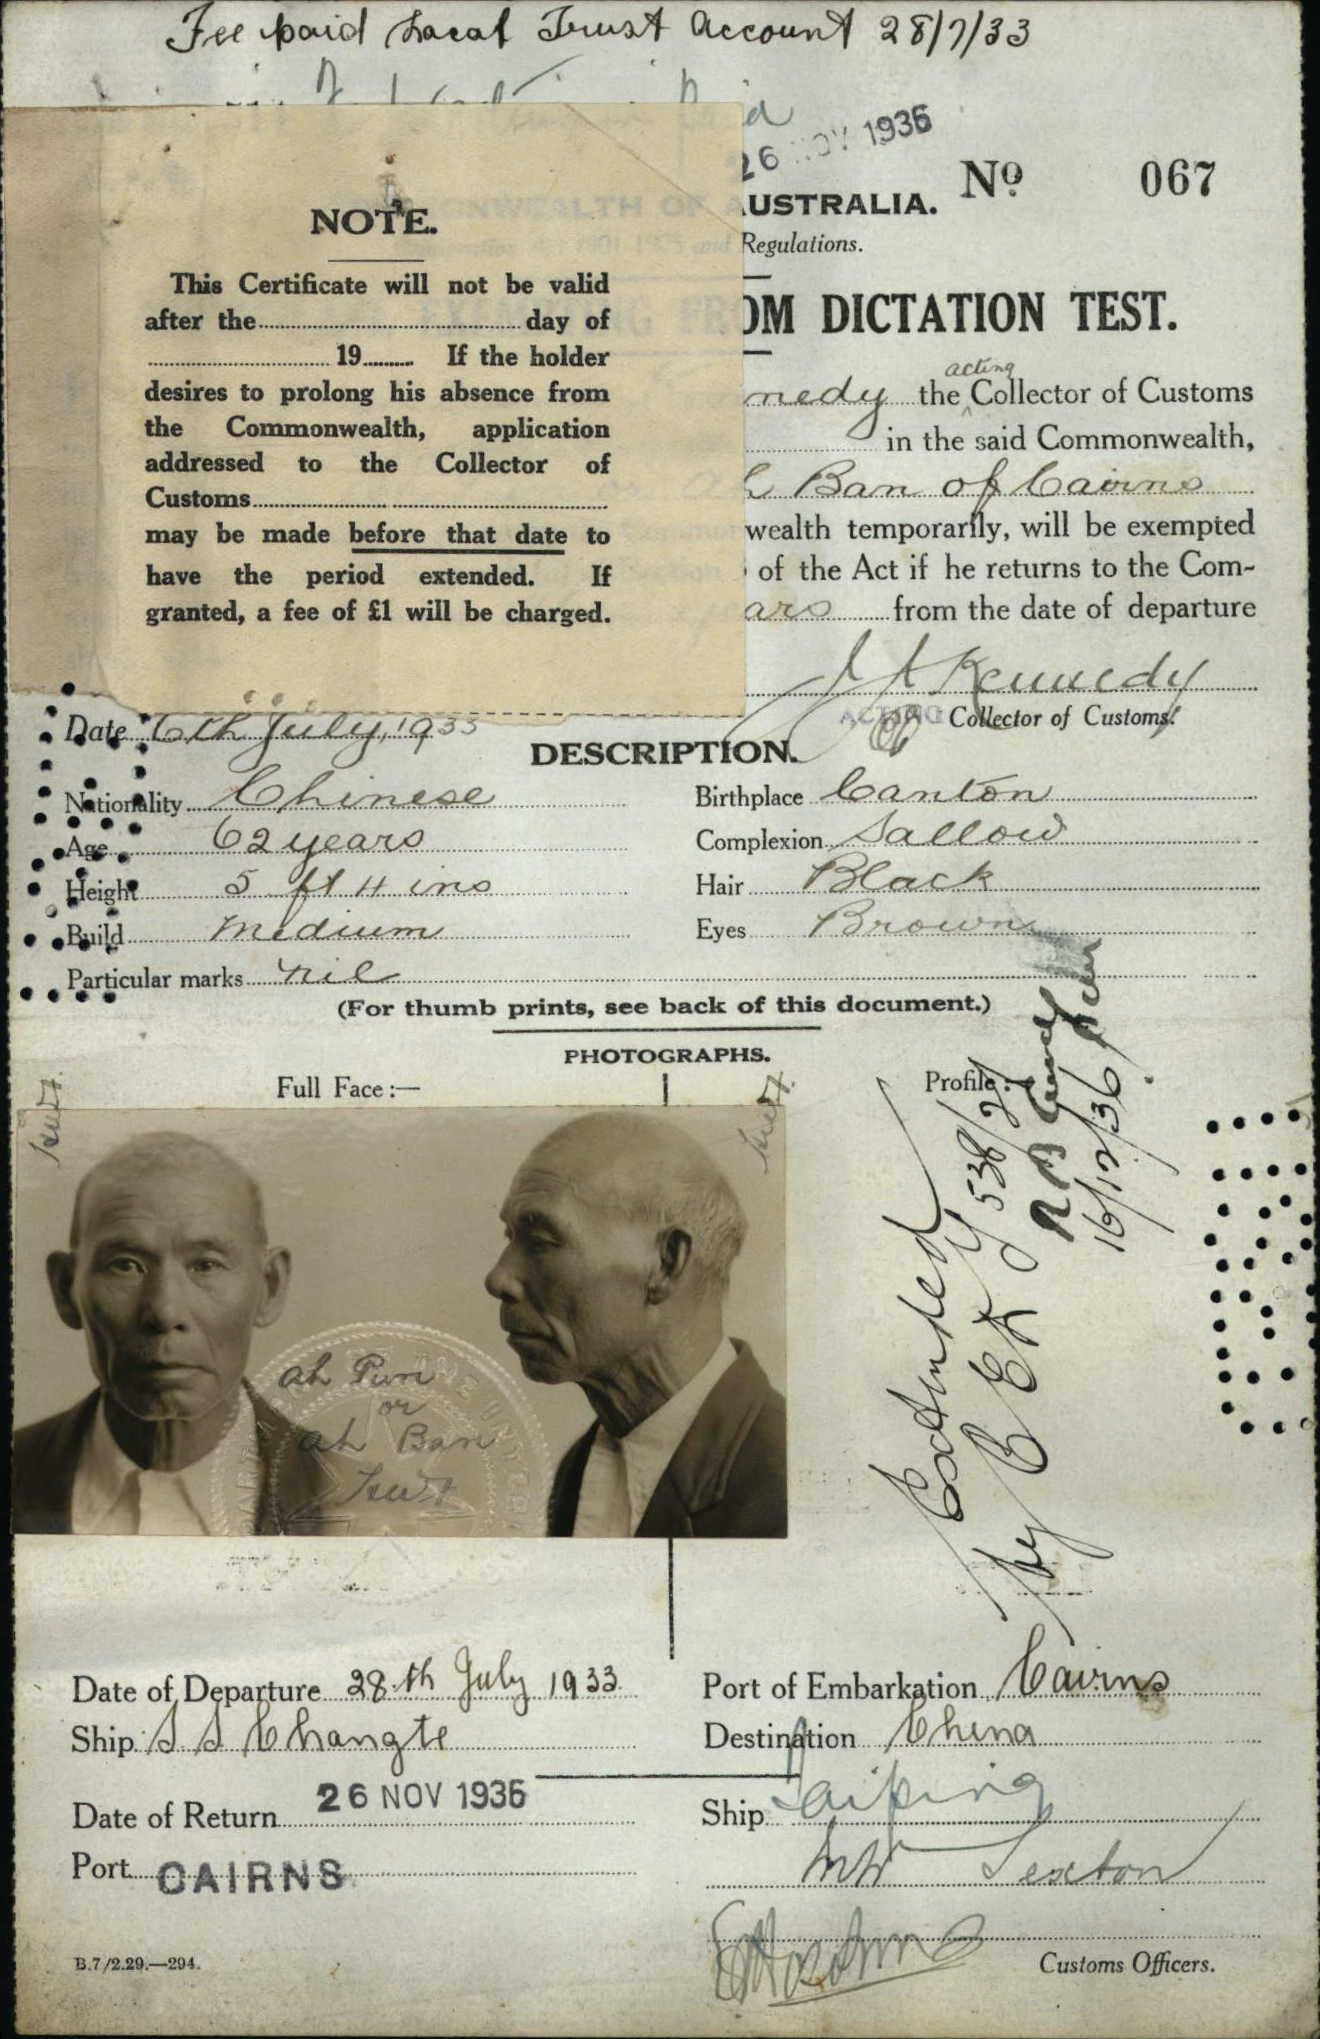 Fee paid Local Trust Account 28/7/33
Paid
26 NOV 1936
No 067
AUSTRALIA.
Regulations.
OM DICTATION TEST.
nedy the acting Collector of Customs
in the said Commonwealth,
h Ban of Cairns
wealth temporarily, will be exempted
of the Act if he returns to the Com-
ears from the date of departure
Kennedy
ACTING Collector of Customs.
NOTE.
This Certificate will not be valid
after the day of
19 If the holder
desires to prolong his absence from
the Commonwealth, application
addressed to the Collector of
Customs
may be made before that date to
have the period extended. If
granted, a fee of £1 will be charged.
Date 6th July, 1933
DESCRIPTION.
Nationality Chinese
Birthplace Canton
Age 62 years
Complexion Sallow
Height 5 ft 4 ins
Hair Black
Build Medium
Eyes Brown
Particular marks nil
(For thumb prints, see back of this document.)
PHOTOGRAPHS.
Full Face:—
Profile:—
Ah Pun
or
Ah Ban
Extended
by
16/12/36
Date of Departure 28th July 1933
Port of Embarkation Cairns
Ship S S Changte
Destination China
Date of Return 26 NOV 1936
Ship Taiping
Port CAIRNS
Sexton
B.7/2.29.—294.
Customs Officers.